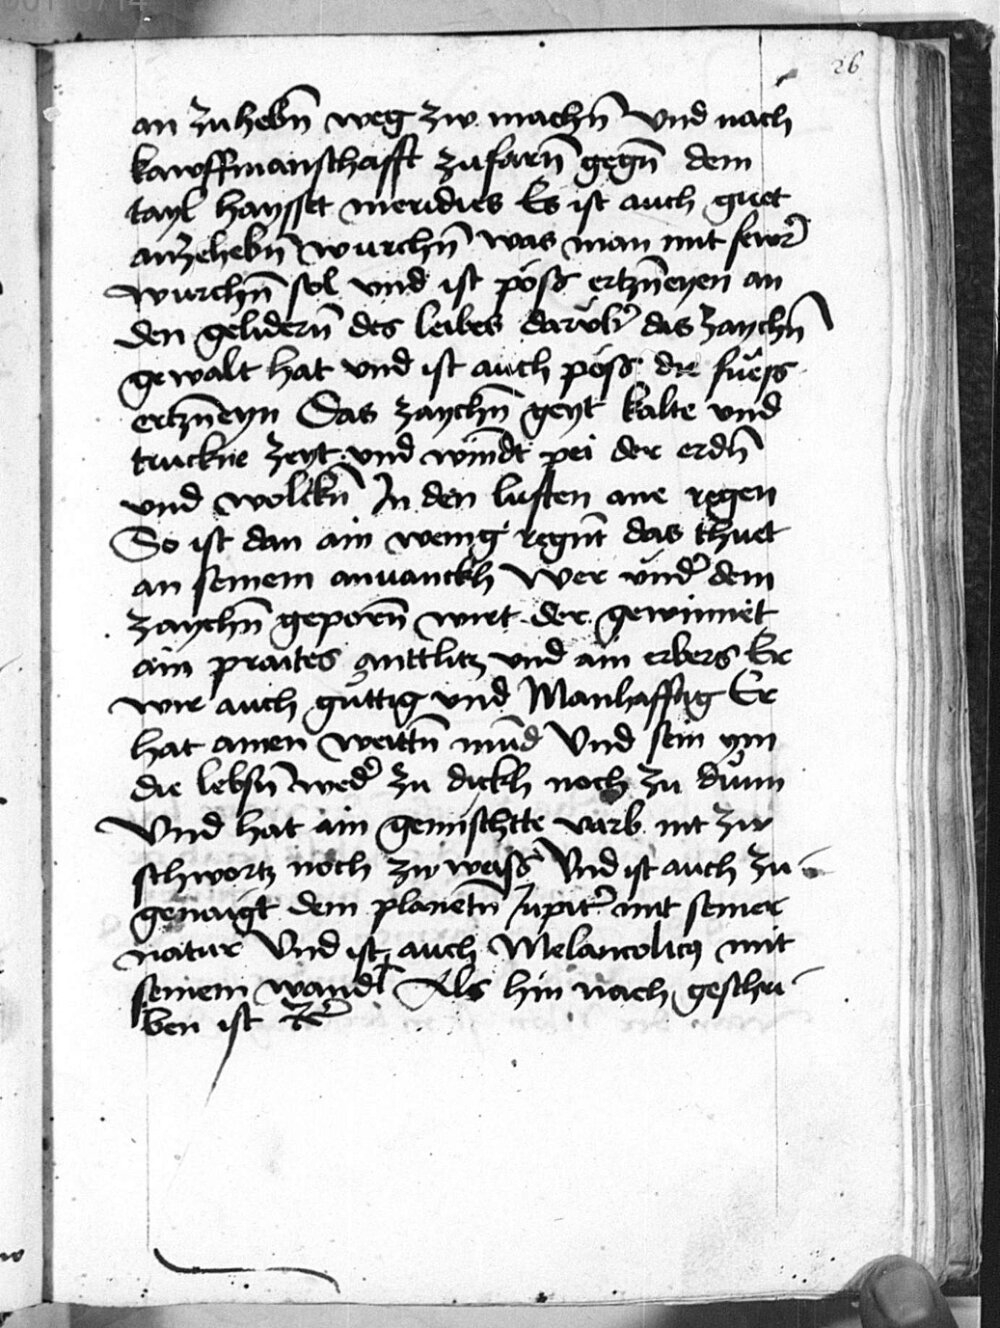 26
an zuhebn̄ weg zw machn̄ Vnd nach
kawffmanschafft zufarn̄ gegn̄ dem
tayl haysset meridies Es ist auch guet
anzehebn̄ wurchn̄ was man mit fewr̄
wurchn̄ sol vnd ist pöss ertzn̄eyen an
den gelidern̄ des leibes darüb̄ das zaychn̄
gewalt hat vnd ist auch pöss die füess
ertzn̄eyn Das zaychn̄ geyt kalte vnd
truckne zeyt vnd windt pei der erdn̄
vnd wolckn̄ In den lufften ane regen
So ist dan ain wenig regn̄t das thuet
an seinem anuanckh Wer vnd̄ dem
zaychn̄ geporn̄ wirt der gewinnet
ain praites anttlitz vnd ain erbers Er
wir auch güttig vnd Manhafftig Er
hat ainen weittn̄ mūd Vnd sein ym
die lebsn̄ wed̄ zu dickh noch zu dünn
Vnd hat ain gemischtte varb nit zw
schwortz noch zw weiss Vnd ist auch zu
genaigt dem planetn̄ Jupit̄ mit seiner
natur Vnd ist auch Melancolicꝰ mit
seinem wandl Als hin nach geschri
ben ist ꝛc̄